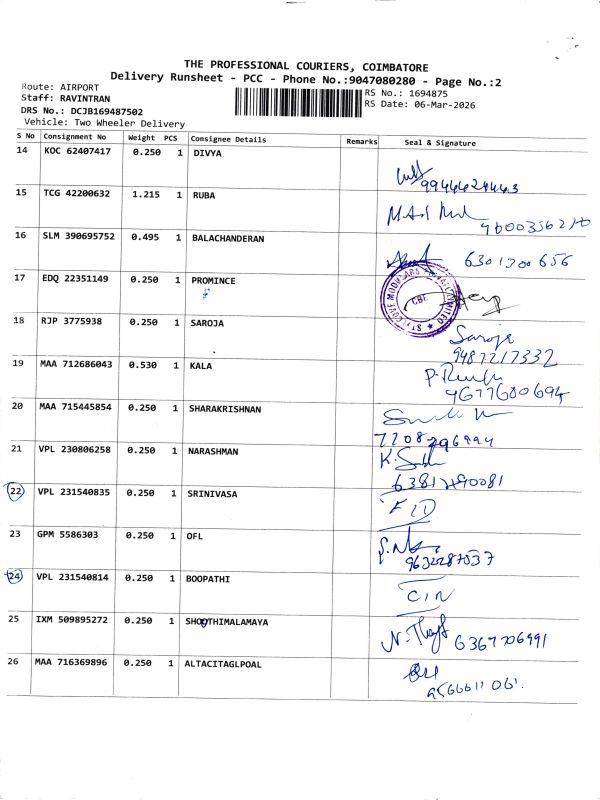 THE PROFESSIONAL COURIERS, COIMBATORE
Delivery Runsheet - PCC - Phone No.:9047080280 - Page No.:2
Route: AIRPORT
Staff: RAVINTRAN
DRS No.: DCJB169487502
Vehicle: Two Wheeler Delivery
RS No.: 1694875
RS Date: 06-Mar-2026
S No Consignment No Weight PCS Consignee Details Remarks Seal & Signature
14 KOC 62407417 0.250 1 DIVYA
15 TCG 42200632 1.215 1 RUBA
16 SLM 390695752 0.495 1 BALACHANDERAN
6301300656
17 EDQ 22351149 0.250 1 PROMINCE
18 RJP 3775938 0.250 1 SAROJA
Saroja
9487217332
19 MAA 712686043 0.530 1 KALA
9677680694
20 MAA 715445854 0.250 1 SHARAKRISHNAN
21 VPL 230806258 0.250 1 NARASHMAN
22 VPL 231540835 0.250 1 SRINIVASA
23 GPM 5586303 0.250 1 OFL
24 VPL 231540814 0.250 1 BOOPATHI
CIN
25 IXM 509895272 0.250 1 SHOOTHIMALAMAYA
6367706991
26 MAA 716369896 0.250 1 ALTACITAGLPOAL